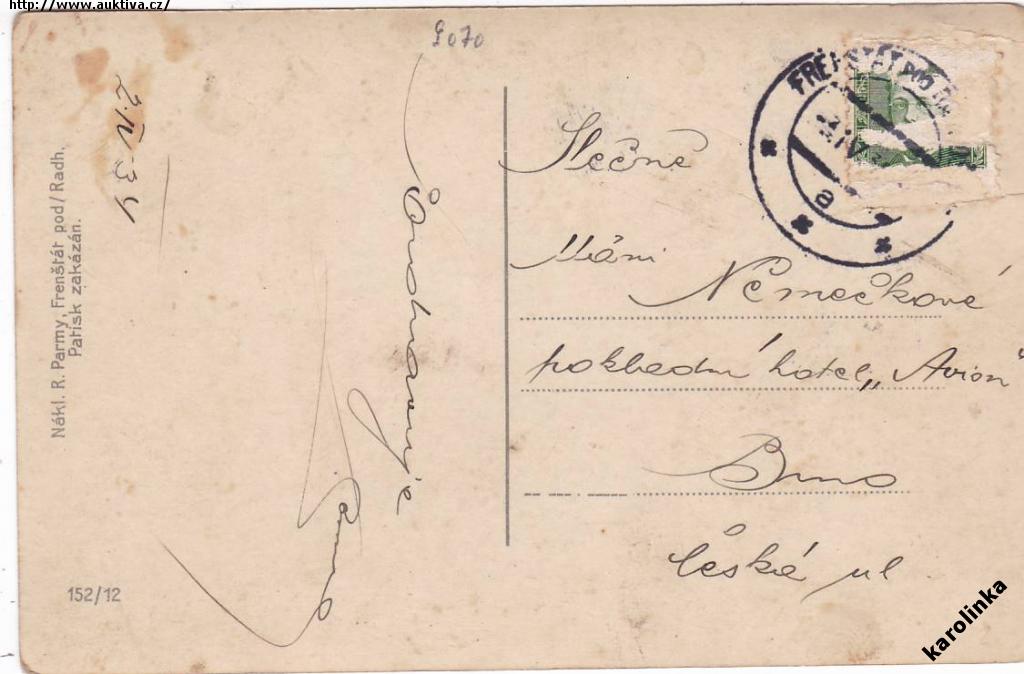 http://www.auktiva.cz/
9070
2.IV.34
Nákl. R. Parmy, Frenštát pod/Radh.
Patisk zakázán.
152/12
FRENŠTÁT POD
2.IV.
a
Slečně
Máni Němečkové
pokladní hotel „Avion"
Brno
Česká ul
karolinka